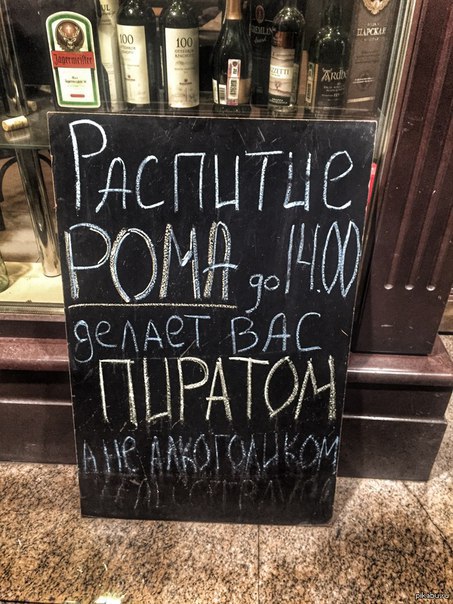 Jägermeister
100
100
ЦАРСКАЯ
Распитие
РОМА до 14.00
делает вас
ПИРАТОМ
а не алкоголиком
pikabu.ru